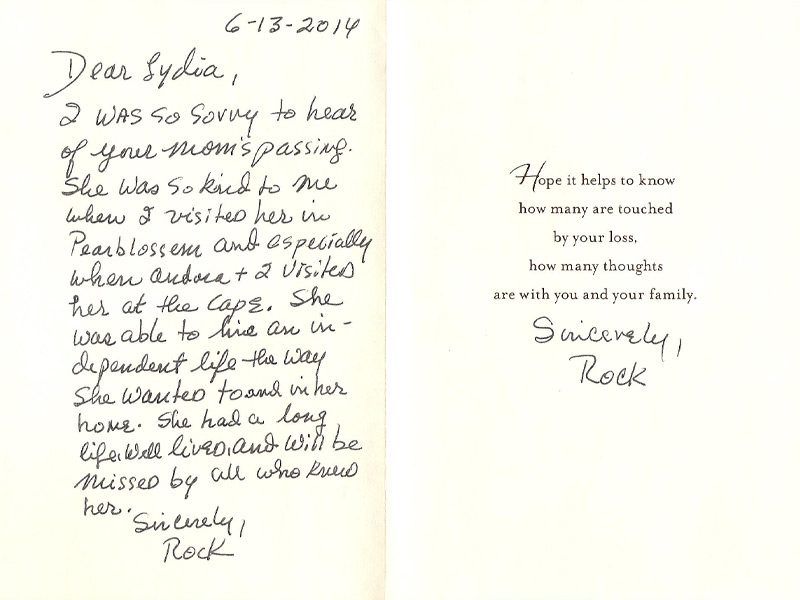 6-13-2014
Dear Lydia,
I was so sorry to hear
of your mom's passing.
She was so kind to me
when I visited her in
Pearblossem and especially
when Andrea + I visited
her at the Cape. She
was able to live an in-
dependent life the way
she wanted to and in her
home. She had a long
life, well lived, and will be
missed by all who knew
her.
Sincerely,
Rock
Hope it helps to know
how many are touched
by your loss,
how many thoughts
are with you and your family.
Sincerely,
Rock